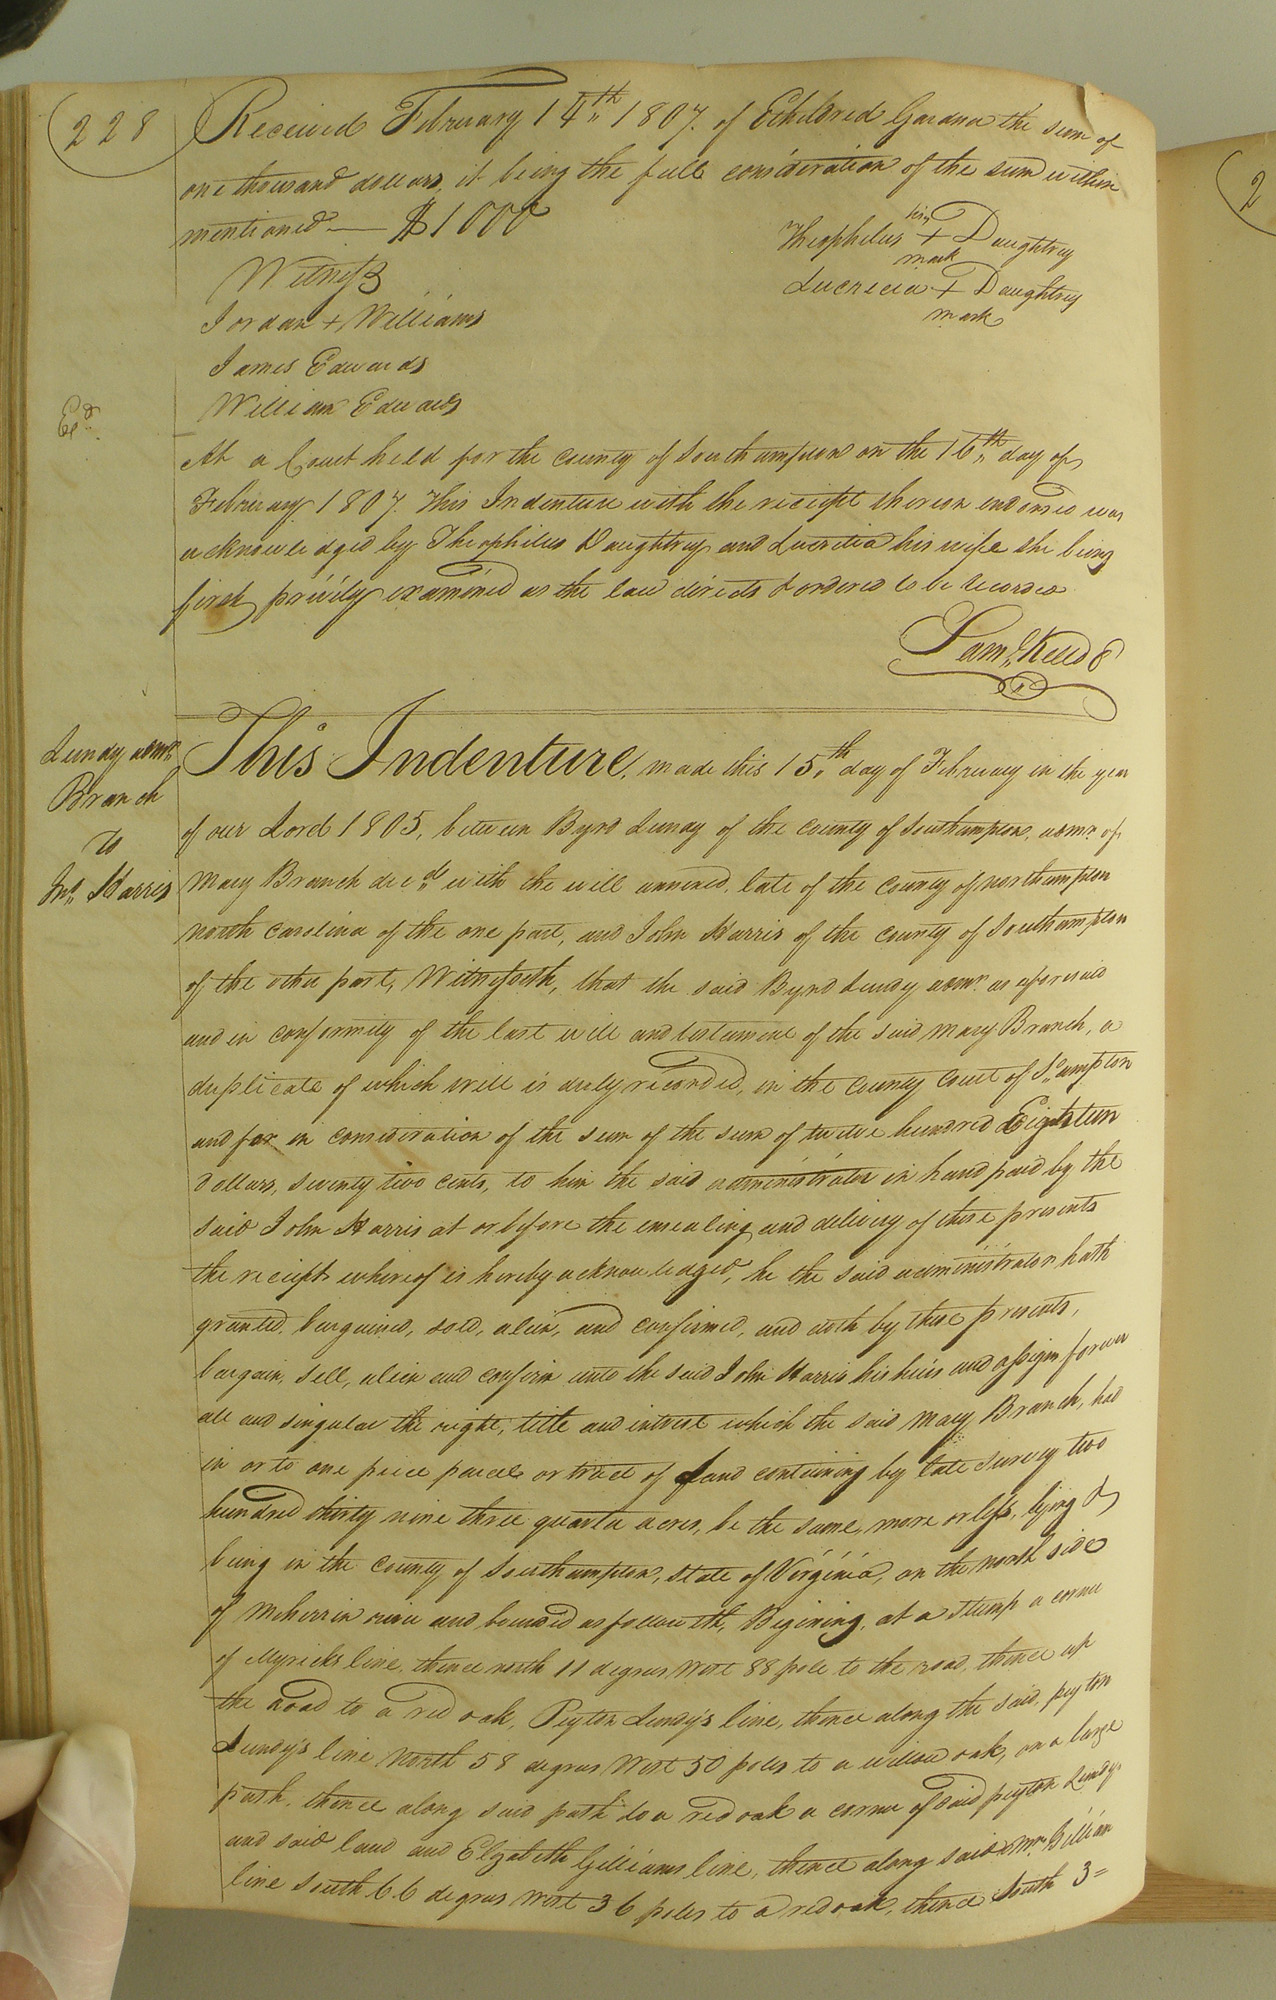 228
Received February 14th 1807. of Etheldred Gardner the sum of
one thousand dollars, it being the full consideration of the sum within
mentioned — $1000
his
Theophilus + Daughtrey
mark
Lucrecia + Daughtrey
mark
Witness
Jordan + Williams
James Edwards
William Edwards
Exd.
At a Court held for the county of Southampton on the 16th day of
February 1807. This Indenture with the receipt thereon endorsed was
acknowledged by Theophilus Daughtrey and Lucretia his wife she being
first privily examined as the law directs & ordered to be recorded
Saml. Kello C
Lundy admr.
Branch
To
Jno. Harris
This Indenture, made this 15th day of February in the year
of our Lord 1805, between Byrd Lundy of the county of Southampton, admr. of
Mary Branch decd. with the will annexed, late of the county of Northampton
North Carolina of the one part, and John Harris of the county of Southampton
of the other part, Witnesseth, that the said Byrd Lundy admr. as aforesaid
and in conformity of the last will and testament of the said Mary Branch, a
duplicate of which will is duly recorded, in the county court of So.ampton
and for in consideration of the sum of the sum of twelve hundred Eighteen
dollars, seventy two cents, to him the said administrator in hand paid by the
said John Harris at or before the ensealing and delivery of these presents
the receipt whereof is hereby acknowledged, he the said administrator hath
granted, bargained, sold, alien, and confirmed, and doth by these presents,
bargain, sell, alien and confirm unto the said John Harris his heirs and assigns forever
all and singular the right, title and interest which the said Mary Branch, had
in or to one piece parcel or tract of Land containing by late survey two
hundred thirty nine three quarter acres, be the same, more or less, lying &
being in the county of Southampton, state of Virginia, on the north side
of Meherrin river and bounded as followeth, Begining, at a Stump a corner
of Myricks line, thence north 11 degrees West 88 pole to the road, thence up
the road to a red oak, Peyton Lundy's line, thence along the said, peyton
Lundy's line North 58 degrees West 50 poles to a willow oak, on a large
path, thence along said path to a red oak a corner of said peyton Lundys
and said land and Elizabeth Gilliams line, thence along said Mrs. Gilliam
line South 66 degrees West 36 poles to a red oak, thence South 3=
2